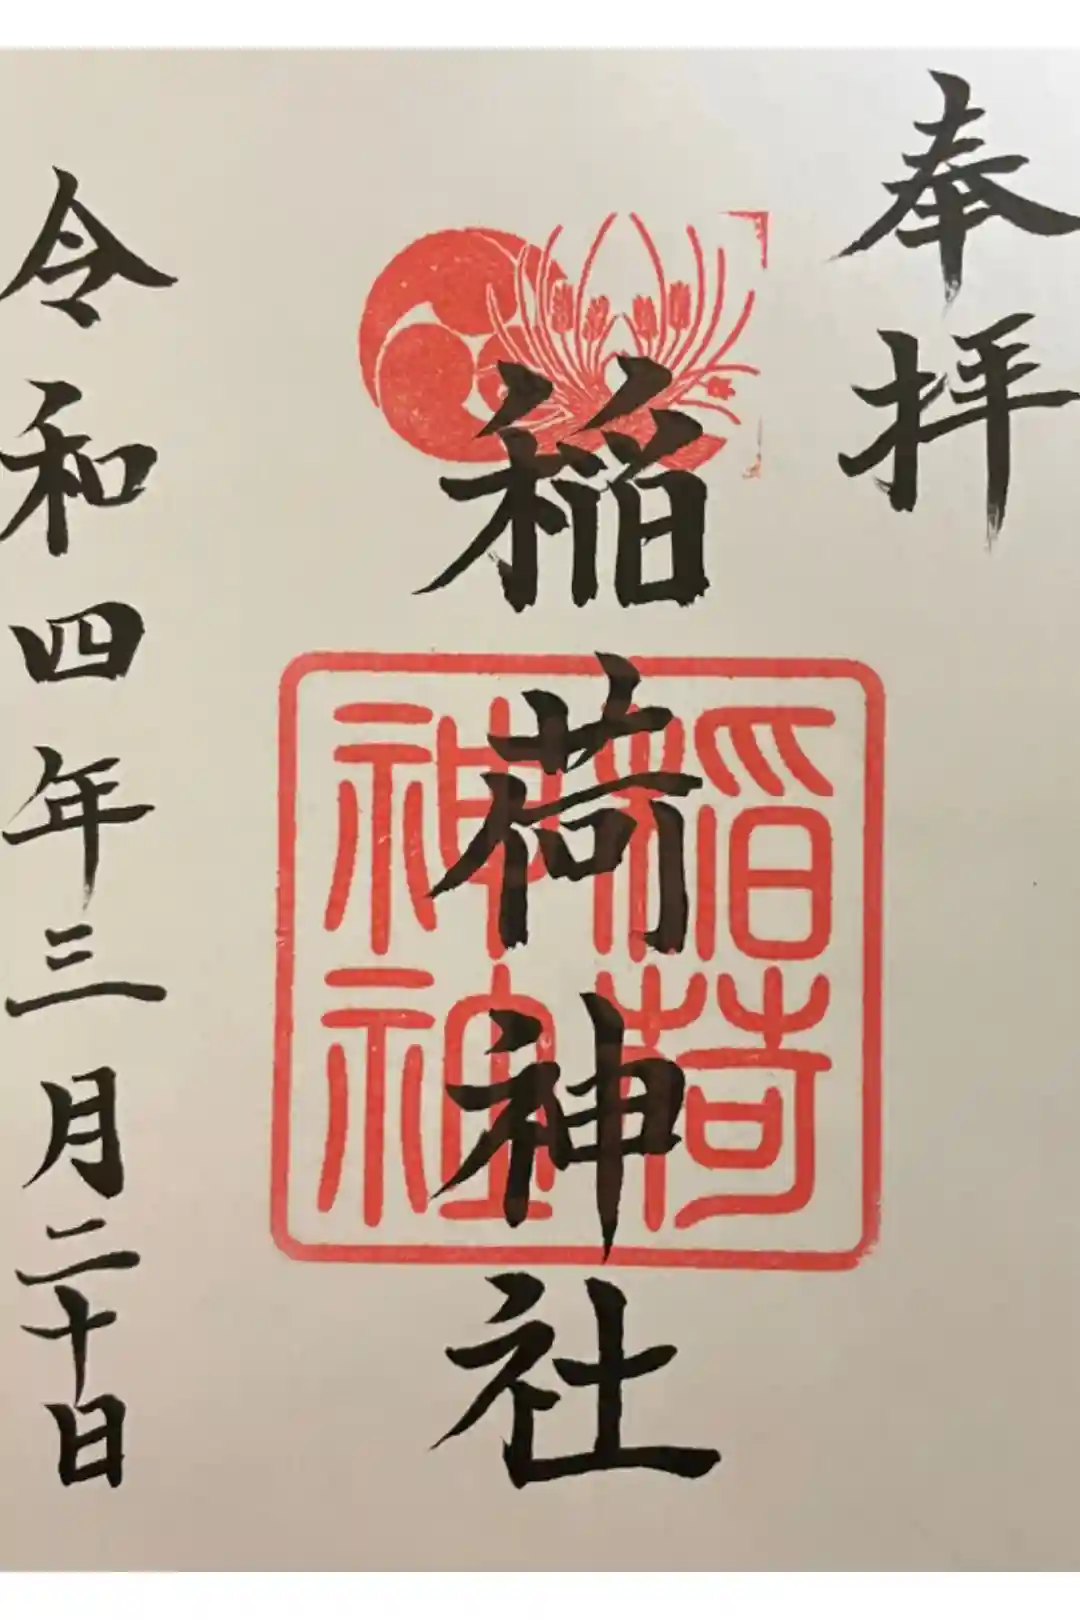 奉拝
稲荷神社
稲荷
神社
令和四年三月二十日